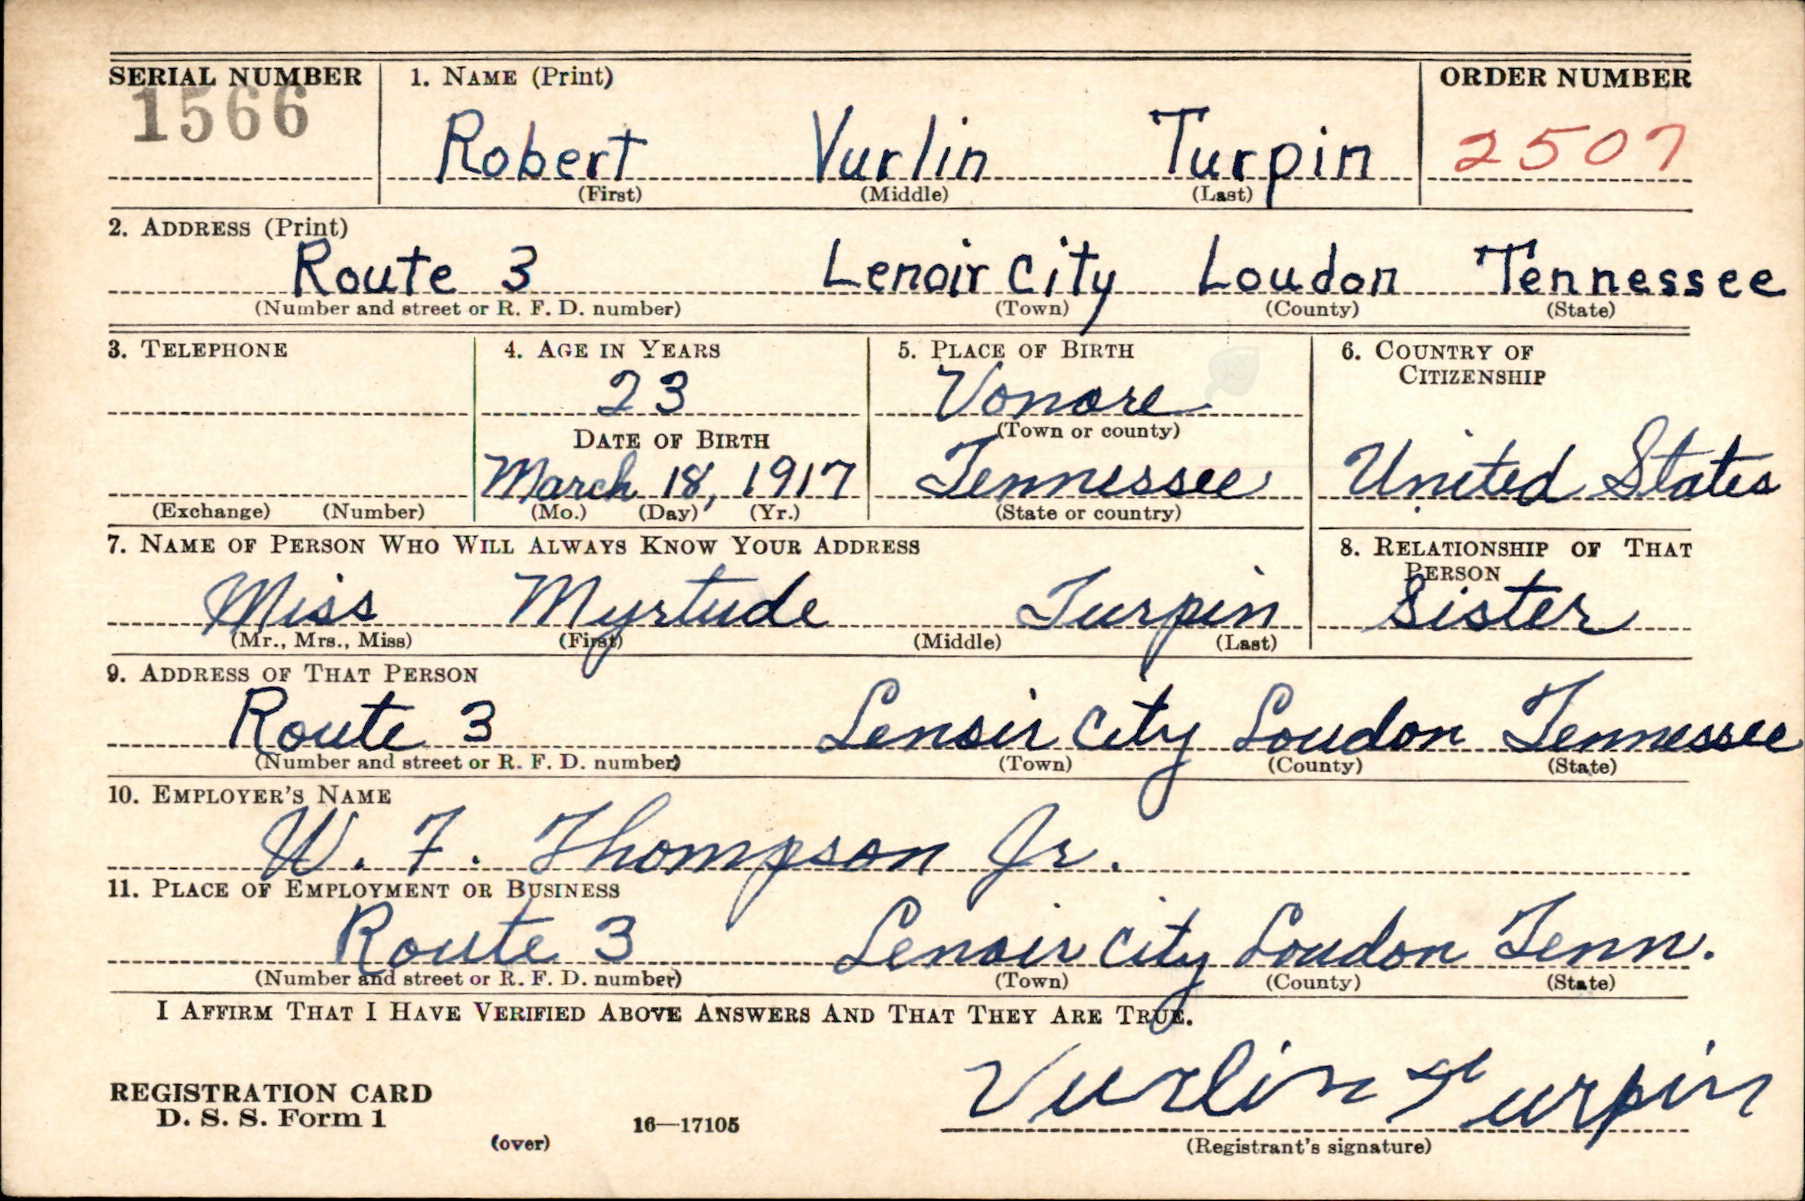 SERIAL NUMBER 1. NAME (Print) ORDER NUMBER
1566 Robert Vurlin Turpin 2507
(First) (Middle) (Last)
2. ADDRESS (Print)
Route 3 Lenoir City Loudon Tennessee
(Number and street or R. F. D. number) (Town) (County) (State)
3. TELEPHONE 4. AGE IN YEARS 5. PLACE OF BIRTH 6. COUNTRY OF
CITIZENSHIP
23 Vonore
DATE OF BIRTH (Town or county)
March 18, 1917 Tennessee United States
(Exchange) (Number) (Mo.) (Day) (Yr.) (State or country)
7. NAME OF PERSON WHO WILL ALWAYS KNOW YOUR ADDRESS 8. RELATIONSHIP OF THAT
PERSON
Miss Myrtude Turpin Sister
(Mr., Mrs., Miss) (First) (Middle) (Last)
9. ADDRESS OF THAT PERSON
Route 3 Lenoir City Loudon Tennessee
(Number and street or R. F. D. number) (Town) (County) (State)
10. EMPLOYER'S NAME
W. F. Thompson Jr.
11. PLACE OF EMPLOYMENT OR BUSINESS
Route 3 Lenoir City Loudon Tenn.
(Number and street or R. F. D. number) (Town) (County) (State)
I AFFIRM THAT I HAVE VERIFIED ABOVE ANSWERS AND THAT THEY ARE TRUE.
Vurlin Turpin
REGISTRATION CARD
D. S. S. Form 1 16—17105
(over) (Registrant's signature)